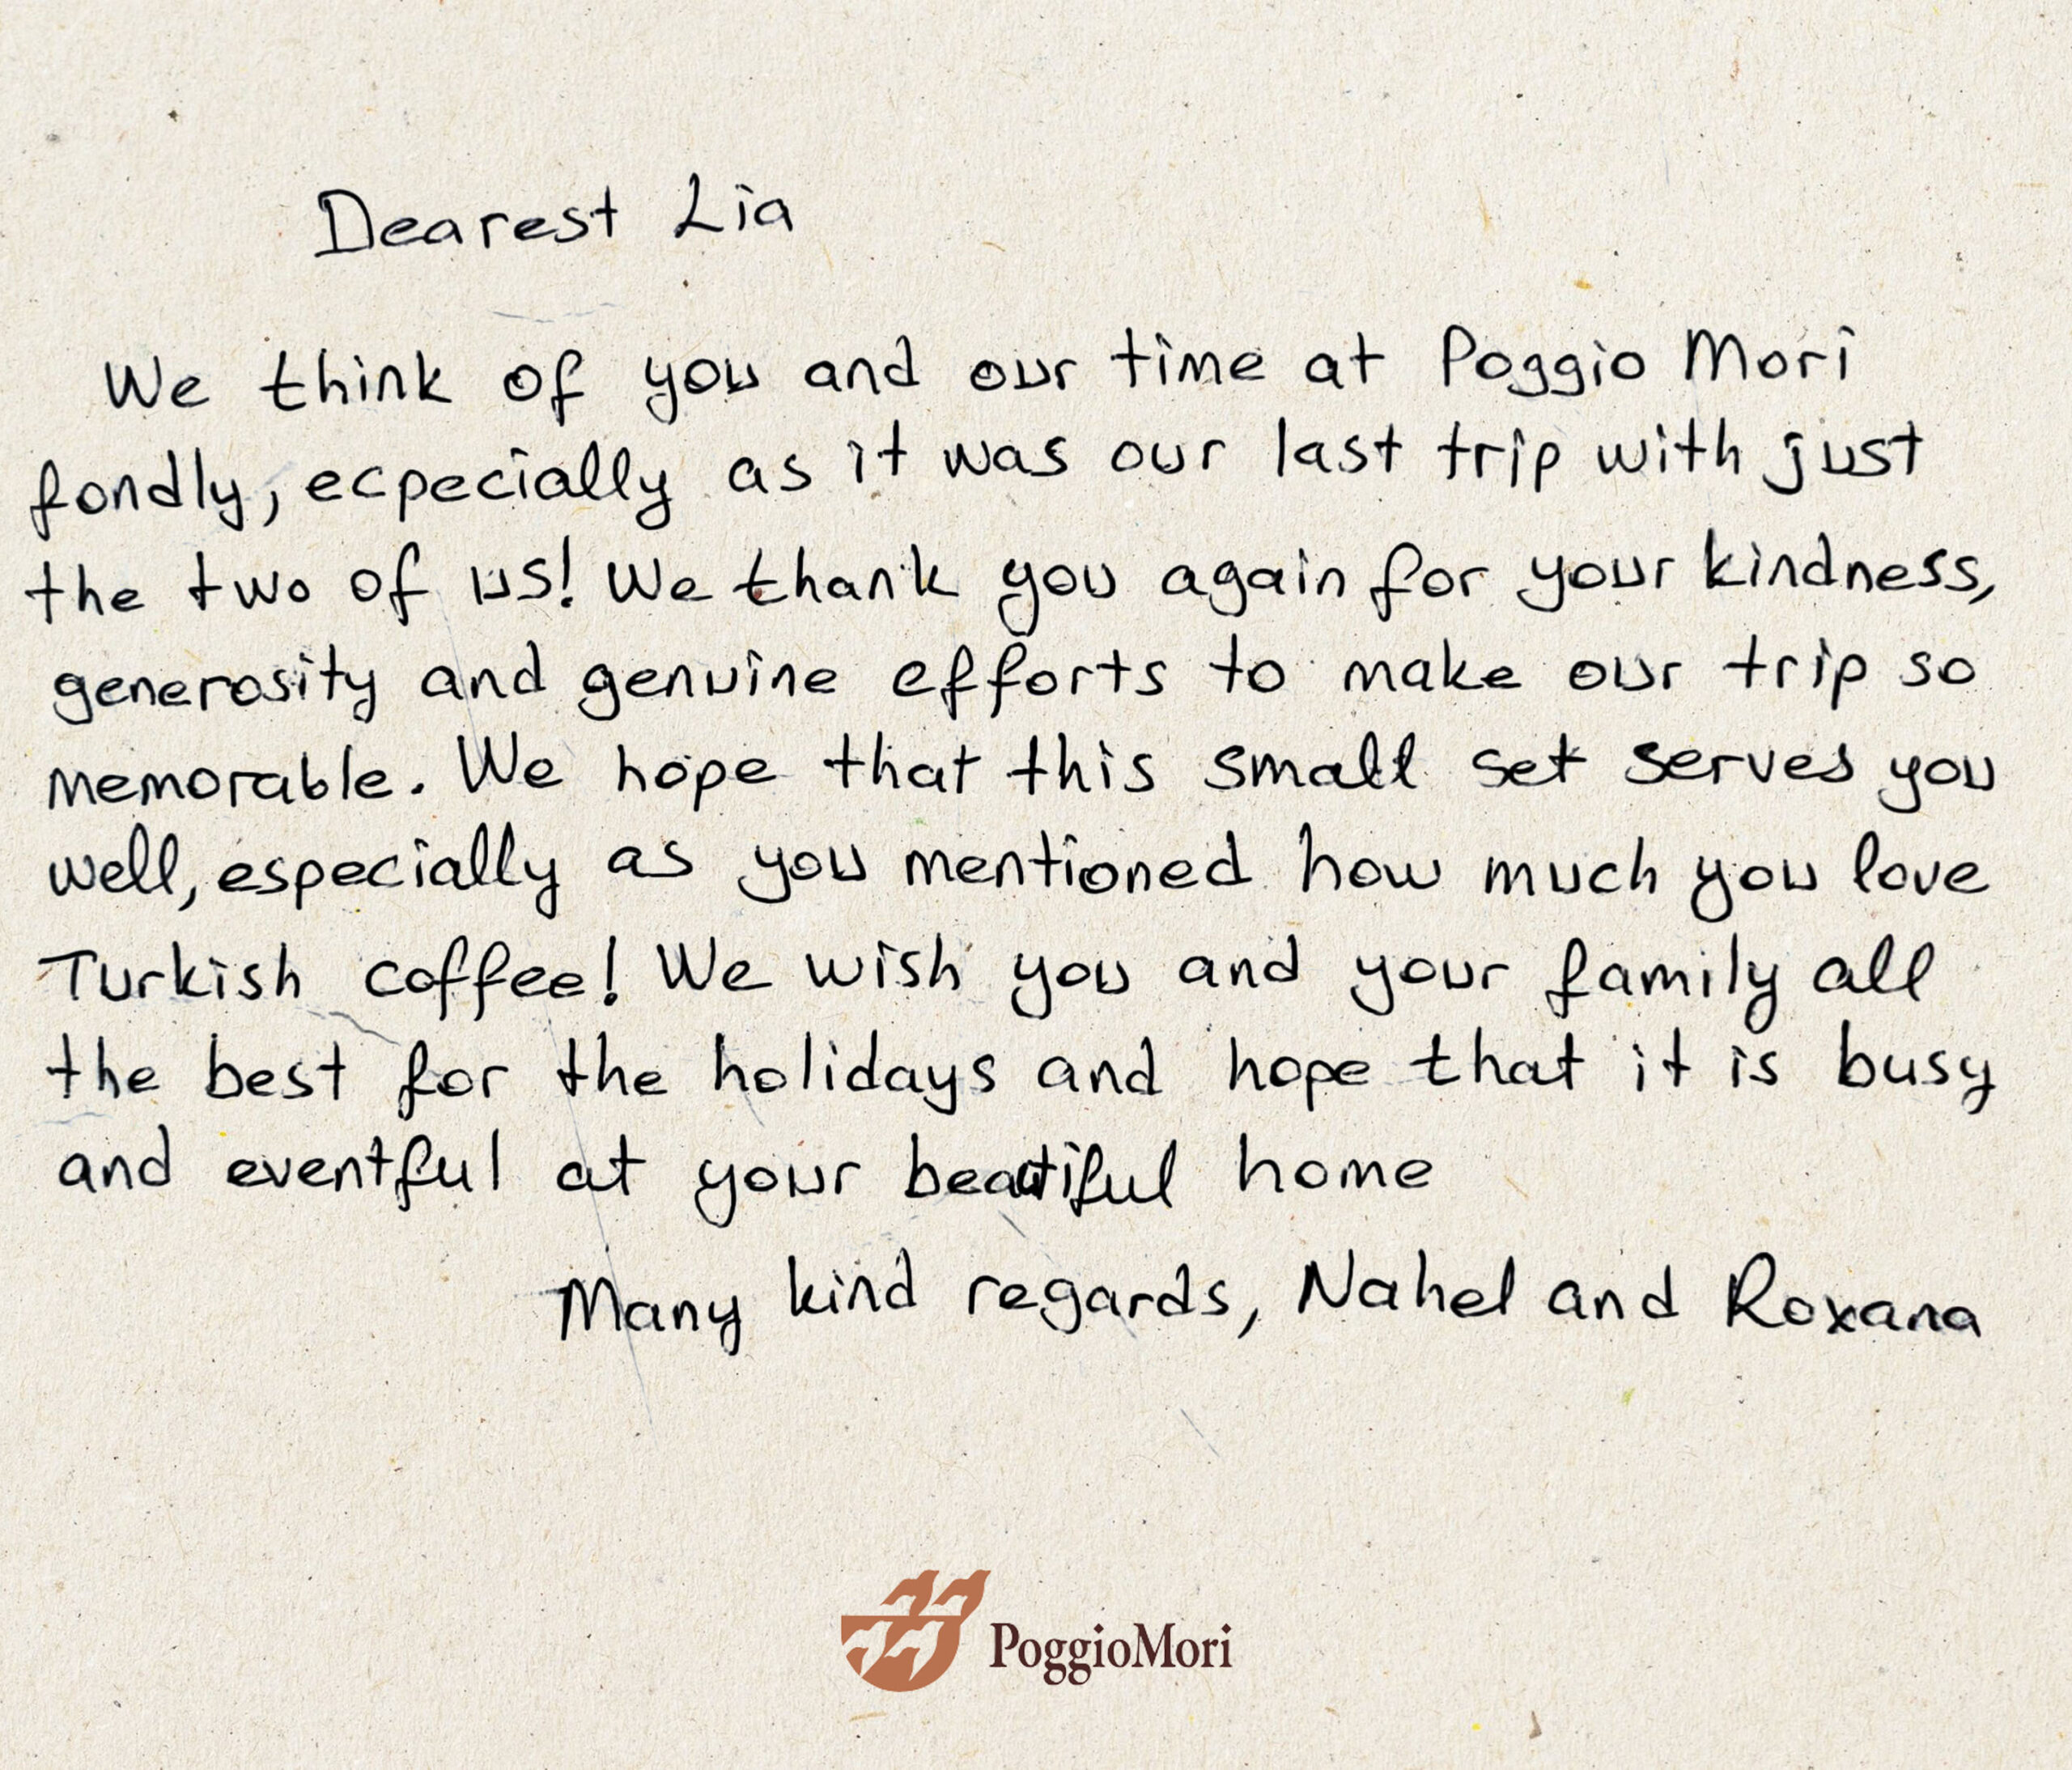 Dearest Lia
We think of you and our time at Poggio Mori
fondly, ecpecially as it was our last trip with just
the two of us! We thank you again for your kindness,
generosity and genuine efforts to make our trip so
memorable. We hope that this small set serves you
well, especially as you mentioned how much you love
Turkish coffee! We wish you and your family all
the best for the holidays and hope that it is busy
and eventful at your beautiful home
Many kind regards, Nahel and Roxana
PoggioMori